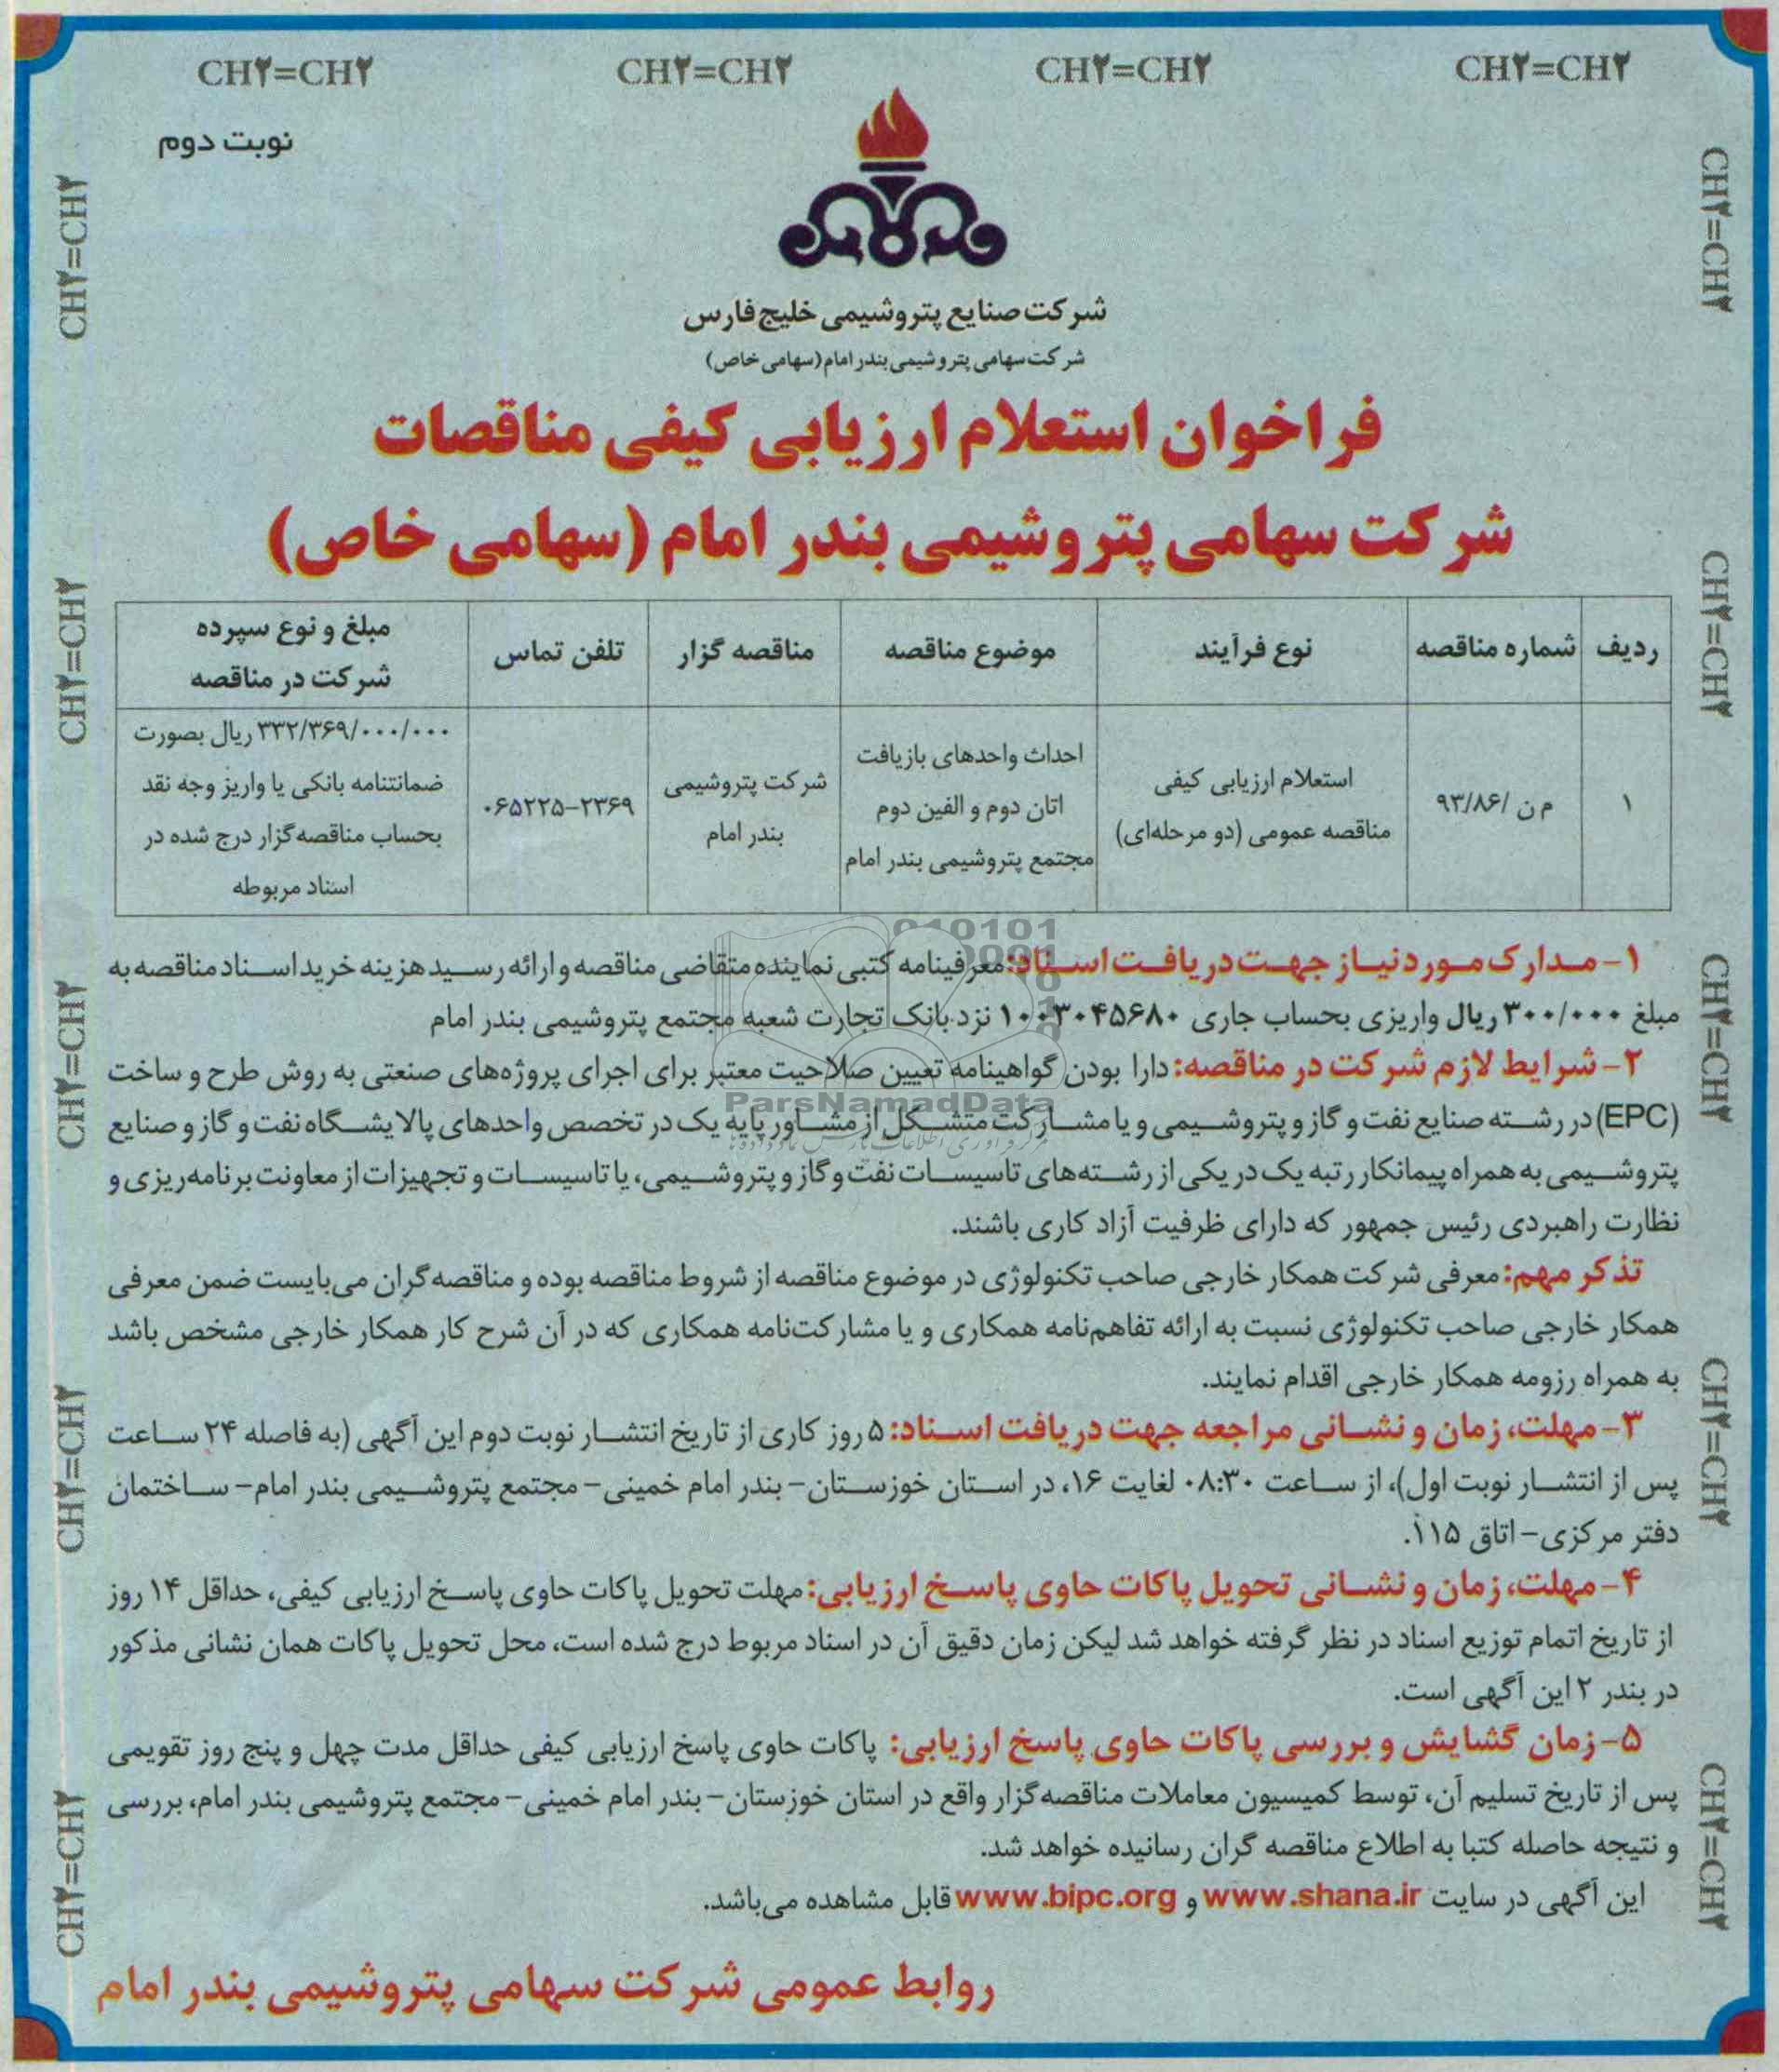 CH۲=CH۲ CH۲=CH۲ CH۲=CH۲ CH۲=CH۲
نوبت دوم
شرکت صنایع پتروشیمی خلیج فارس
شرکت سهامی پتروشیمی بندر امام (سهامی خاص)
فراخوان استعلام ارزیابی کیفی مناقصات
شرکت سهامی پتروشیمی بندر امام (سهامی خاص)
ردیف | شماره مناقصه | نوع فرآیند | موضوع مناقصه | مناقصه گزار | تلفن تماس | مبلغ و نوع سپرده شرکت در مناقصه
۱ | م ن /۹۳/۸۶ | استعلام ارزیابی کیفی مناقصه عمومی (دو مرحله‌ای) | احداث واحدهای بازیافت اتان دوم و الفین دوم مجتمع پتروشیمی بندر امام | شرکت پتروشیمی بندر امام | ۰۶۵۲۲۵-۲۳۶۹ | ۳۳۲/۳۶۹/۰۰۰/۰۰۰ ریال بصورت ضمانتنامه بانکی یا واریز وجه نقد بحساب مناقصه‌گزار درج شده در اسناد مربوطه
۱- مدارک مورد نیاز جهت دریافت اسناد: معرفینامه کتبی نماینده متقاضی مناقصه و ارائه رسید هزینه خرید اسناد مناقصه به
مبلغ ۳۰۰/۰۰۰ ریال واریزی بحساب جاری ۱۰۰۳۰۴۵۶۸۰ نزد بانک تجارت شعبه مجتمع پتروشیمی بندر امام
۲- شرایط لازم شرکت در مناقصه: دارا بودن گواهینامه تعیین صلاحیت معتبر برای اجرای پروژه‌های صنعتی به روش طرح و ساخت
(EPC) در رشته صنایع نفت و گاز و پتروشیمی و یا مشارکت متشکل از مشاور پایه یک در تخصص واحدهای پالایشگاه نفت و گاز و صنایع
پتروشیمی به همراه پیمانکار رتبه یک در یکی از رشته‌های تاسیسات نفت و گاز و پتروشیمی، یا تاسیسات و تجهیزات از معاونت برنامه‌ریزی و
نظارت راهبردی رئیس جمهور که دارای ظرفیت آزاد کاری باشند.
تذکر مهم: معرفی شرکت همکار خارجی صاحب تکنولوژی در موضوع مناقصه از شروط مناقصه بوده و مناقصه‌گران می‌بایست ضمن معرفی
همکار خارجی صاحب تکنولوژی نسبت به ارائه تفاهم‌نامه همکاری و یا مشارکت‌نامه همکاری که در آن شرح کار همکار خارجی مشخص باشد
به همراه رزومه همکار خارجی اقدام نمایند.
۳- مهلت، زمان و نشانی مراجعه جهت دریافت اسناد: ۵ روز کاری از تاریخ انتشار نوبت دوم این آگهی (به فاصله ۲۴ ساعت
پس از انتشار نوبت اول)، از ساعت ۰۸:۳۰ لغایت ۱۶، در استان خوزستان- بندر امام خمینی- مجتمع پتروشیمی بندر امام- ساختمان
دفتر مرکزی- اتاق ۱۱۵.
۴- مهلت، زمان و نشانی تحویل پاکات حاوی پاسخ ارزیابی: مهلت تحویل پاکات حاوی پاسخ ارزیابی کیفی، حداقل ۱۴ روز
از تاریخ اتمام توزیع اسناد در نظر گرفته خواهد شد لیکن زمان دقیق آن در اسناد مربوط درج شده است، محل تحویل پاکات همان نشانی مذکور
در بندر ۲ این آگهی است.
۵- زمان گشایش و بررسی پاکات حاوی پاسخ ارزیابی: پاکات حاوی پاسخ ارزیابی کیفی حداقل مدت چهل و پنج روز تقویمی
پس از تاریخ تسلیم آن، توسط کمیسیون معاملات مناقصه‌گزار واقع در استان خوزستان- بندر امام خمینی- مجتمع پتروشیمی بندر امام، بررسی
و نتیجه حاصله کتبا به اطلاع مناقصه گران رسانیده خواهد شد.
این آگهی در سایت www.shana.ir و www.bipc.org قابل مشاهده می‌باشد.
روابط عمومی شرکت سهامی پتروشیمی بندر امام
CH۲=CH۲
CH۲=CH۲
CH۲=CH۲
CH۲=CH۲
CH۲=CH۲
CH۲=CH۲
CH۲=CH۲
CH۲=CH۲
CH۲=CH۲
CH۲=CH۲
ParsNamadData